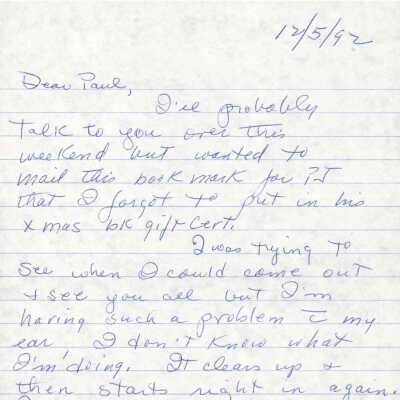 12/5/92
Dear Paul,
I'll probably
Talk to you over this
weekend but wanted to
mail this book mark for PJ
that I forgot to put in his
xmas bk gift cert.
I was trying to
see when I could come out
+ see you all but I'm
having such a problem c̄ my
ear, I don't know what
I'm doing. It clears up +
then starts right in again.